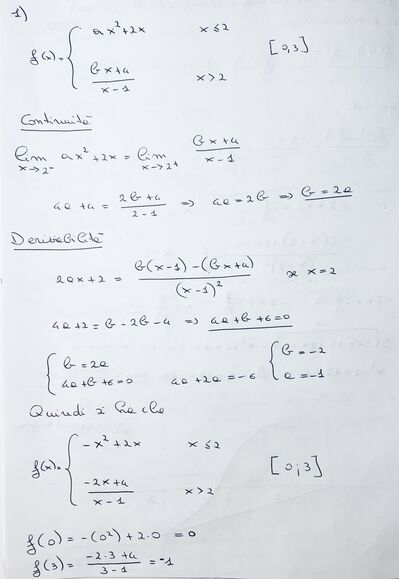 1)
f(x) = { ax² + 2x x ≤ 2 [0,3]
(bx+4)/(x-1) x > 2
Continuità
lim x→2⁻ ax² + 2x = lim x→2⁺ (bx+4)/(x-1)
4a + 4 = (2b+4)/(2-1) ⇒ 4a = 2b ⇒ b = 2a
Derivabilità
2ax + 2 = (b(x-1) - (bx+4))/(x-1)² x = 2
4a + 2 = b - 2b - 4 ⇒ 4a + b + 6 = 0
{ b = 2a { b = -2
4a + b + 6 = 0 4a + 2a = -6 a = -1
Quindi si ha che
f(x) = { -x² + 2x x ≤ 2 [0;3]
(-2x+4)/(x-1) x > 2
f(0) = -(0²) + 2·0 = 0
f(3) = (-2·3+4)/(3-1) = -1